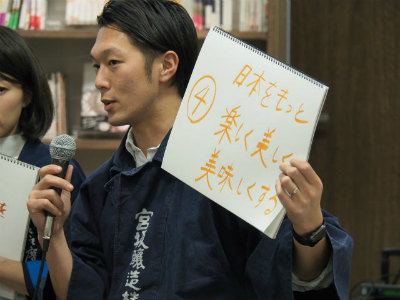 ④
日本をもっと
楽しく美しく
美味しくする。
宮坂醸造